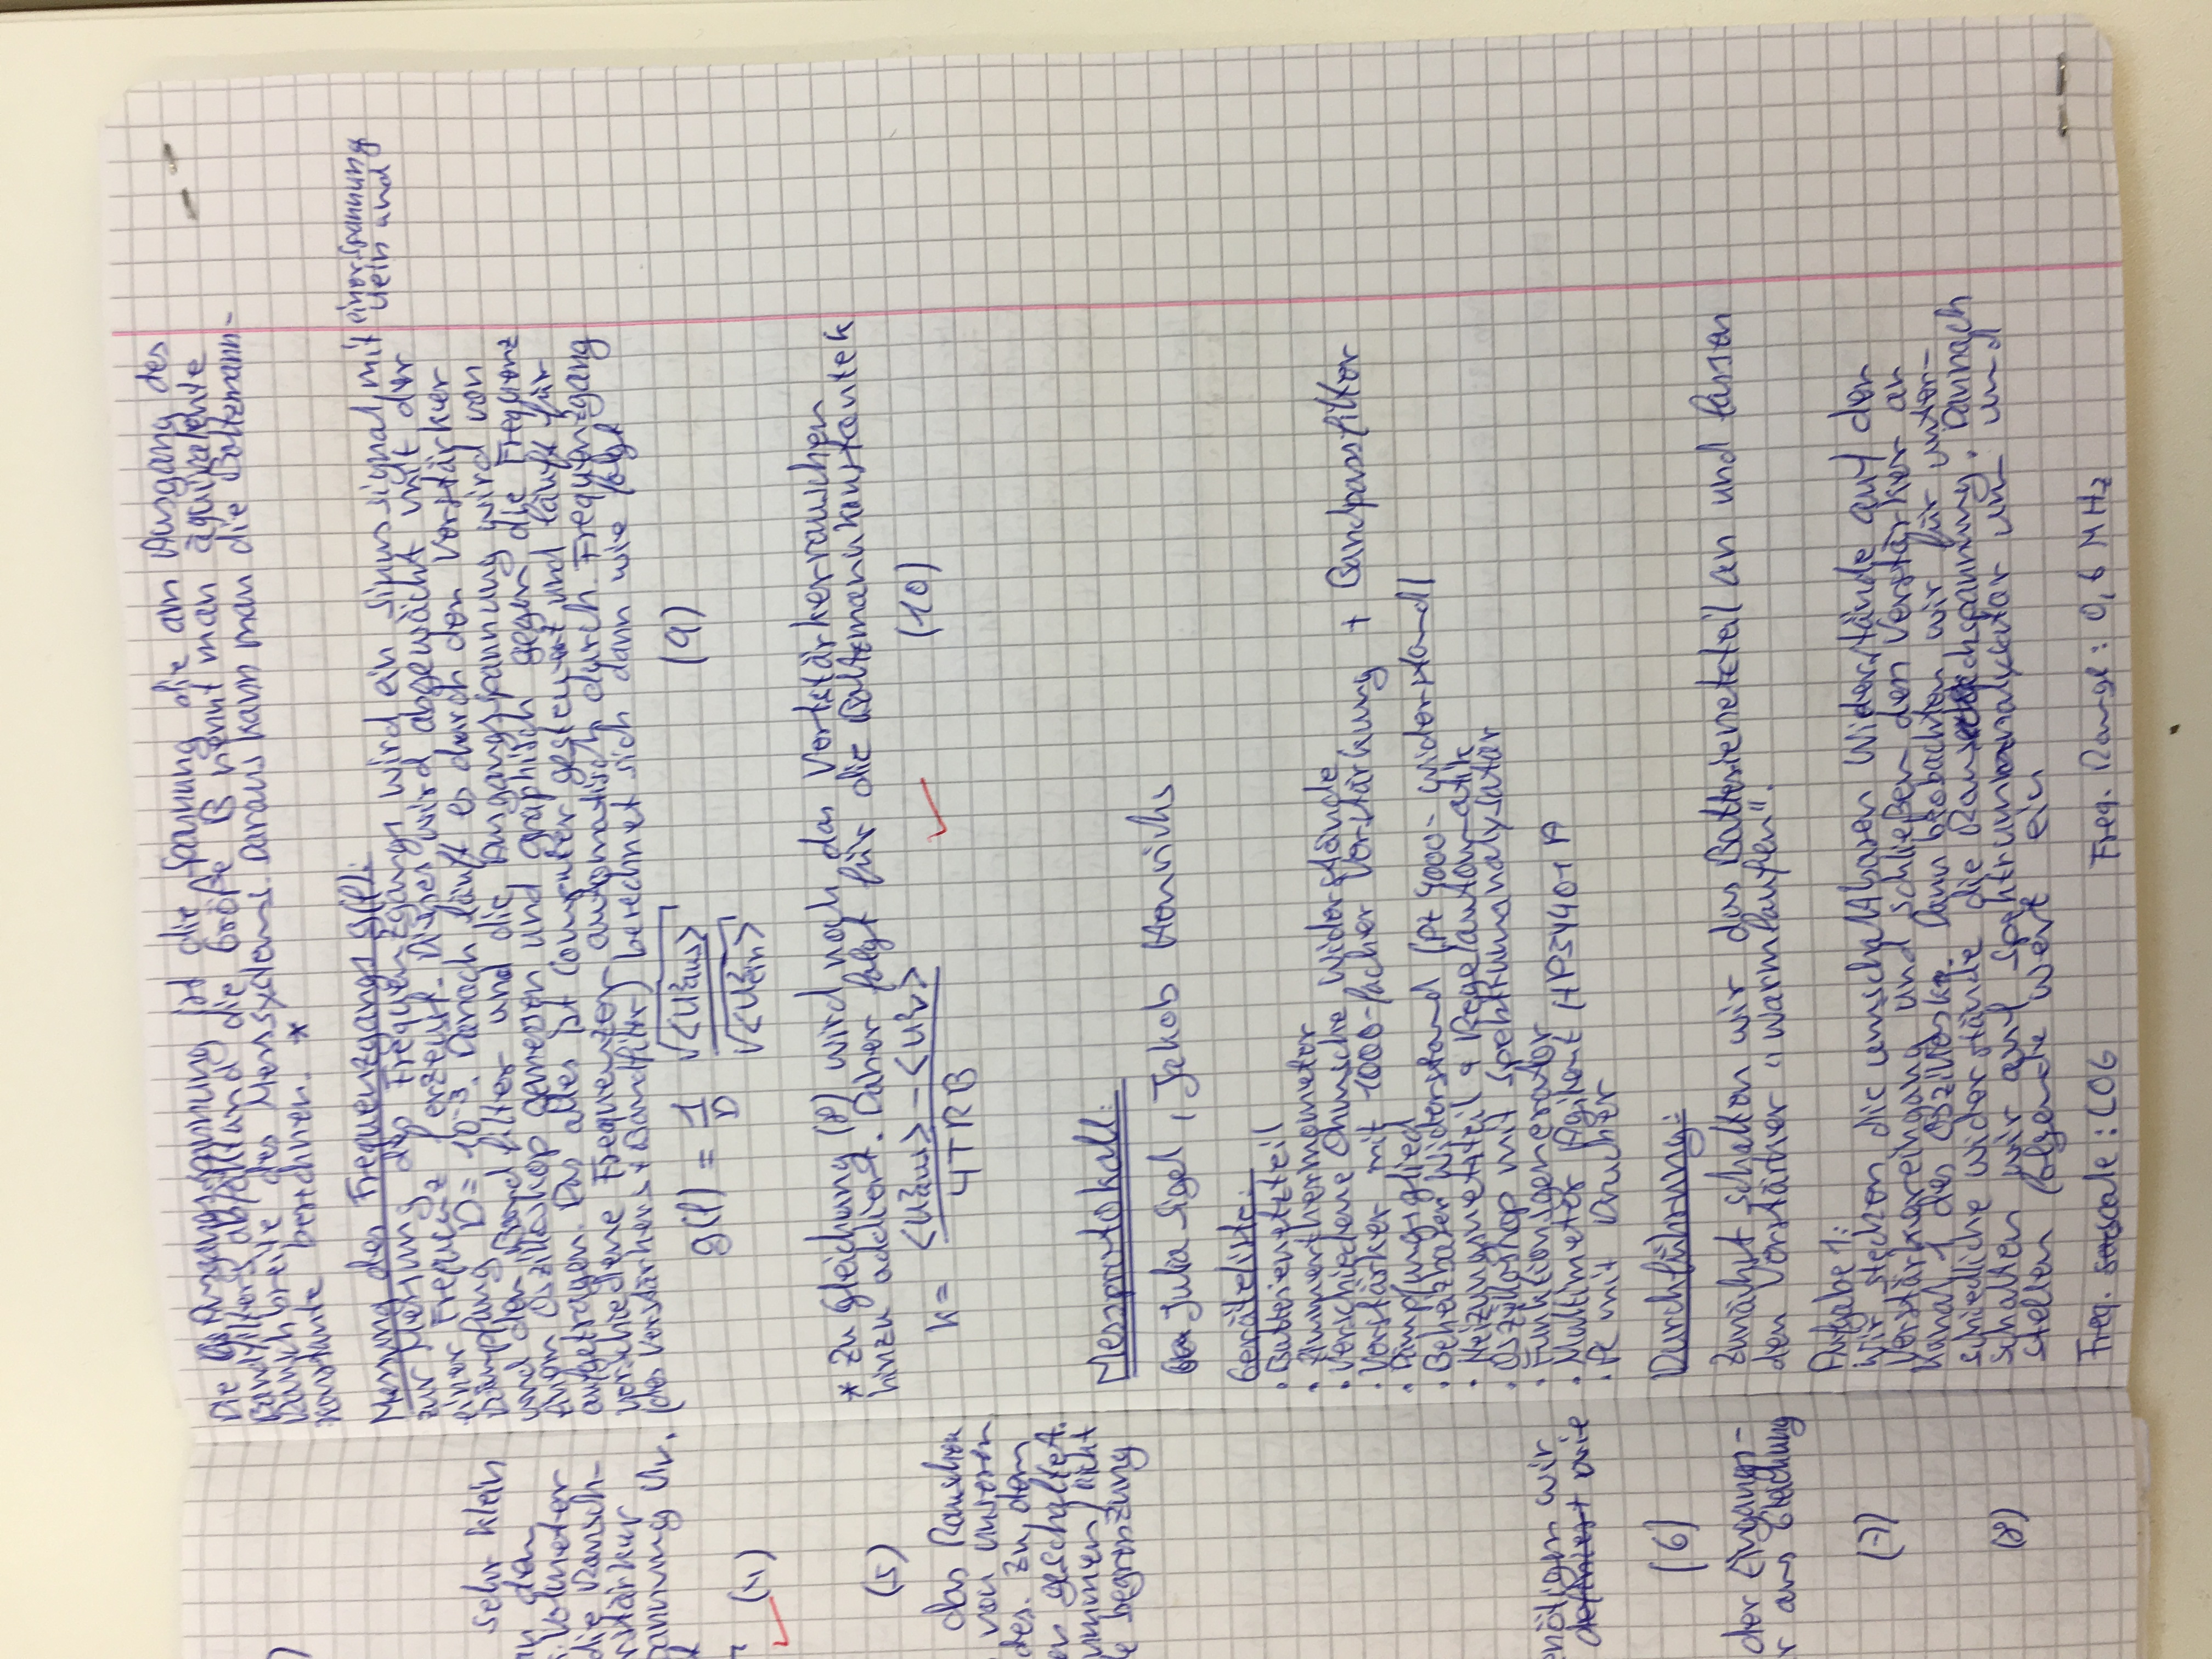 )
sehr klein
an den
. Voltmeter
die Rausch-
rstärker
pannung Uv.
(4)
(5)
das Rauschen
von unseren
des. Zu dem
geschaltet.
ummen, nicht
begrenzung
enötigen wir
definiert wie
(6)
der Eingangs-
r aus Gleichung
(7)
(8)
Die Ausgangsspannung ist die Spannung die am Ausgang des
Bandfilters abfällt und die Größe B nennt man äquivalente
Rauschbreite des Messsystems. Daraus kann man die Boltzmann-
konstante berechnen. *
Messung des Frequenzgangs g(f):
zur Messung des Frequenzgangs wird ein Sinussignal mit einer Spannung Uein und
einer Frequenz f erzeugt. Dieses wird abgewächt mit der
Dämpfung D = 10⁻³. Danach läuft es durch den Verstärker
und den Bandfilter und die Ausgangsspannung wird von
einem Oszilloskop gemessen und graphisch gegen die Frequenz
aufgetragen. Das alles ist Computer gesteuert und läuft für
verschiedene Frequenzen automatisch durch. Frequenzgang
(des Verstärkers + Bandfilter) berechnet sich dann wie folgt
g(f) = 1/D √<U²aus> / √<U²ein> (9)
* Zu Gleichung (8) wird noch das Verstärkerrauschen
hinzu addiert. Daher folgt für die Boltzmannkonstante k
k = <U²aus> - <U²v> / 4TRB (10)
Messprotokoll:
Julia Sigel, Jakob Henrichs
Geräteliste:
· Batterienetzteil
· Zimmerthermometer
· Verschiedene Ohmsche Widerstände
· Verstärker mit 1000-facher Verstärkung + Bandpassfilter
· Dämpfungsglied
· Beheizbarer Widerstand (Pt 4000-Widerstand)
· Heizungsnetzteil + Regelautomatik
· Oszilloskop mit Spektrumanalysator
· Funktionsgenerator
· Multimeter Agilent HP34401A
· PC mit Drucker
Durchführung:
Zunächst schalten wir das Batterienetzteil an und lassen
den Verstärker "warmlaufen".
Aufgabe 1:
Wir stecken die umschaltbaren Widerstände auf den
Verstärkereingang und schließen den Verstärker an
Kanal 1 des Oszillosk. Dann beobachten wir für unter-
schiedliche Widerstände die Rauschspannung. Dannach
schalten wir auf Spektrumanalysator um und
stellen folgende Wert ein
Freq. scale: LOG Freq. Range: 0,6 MHz